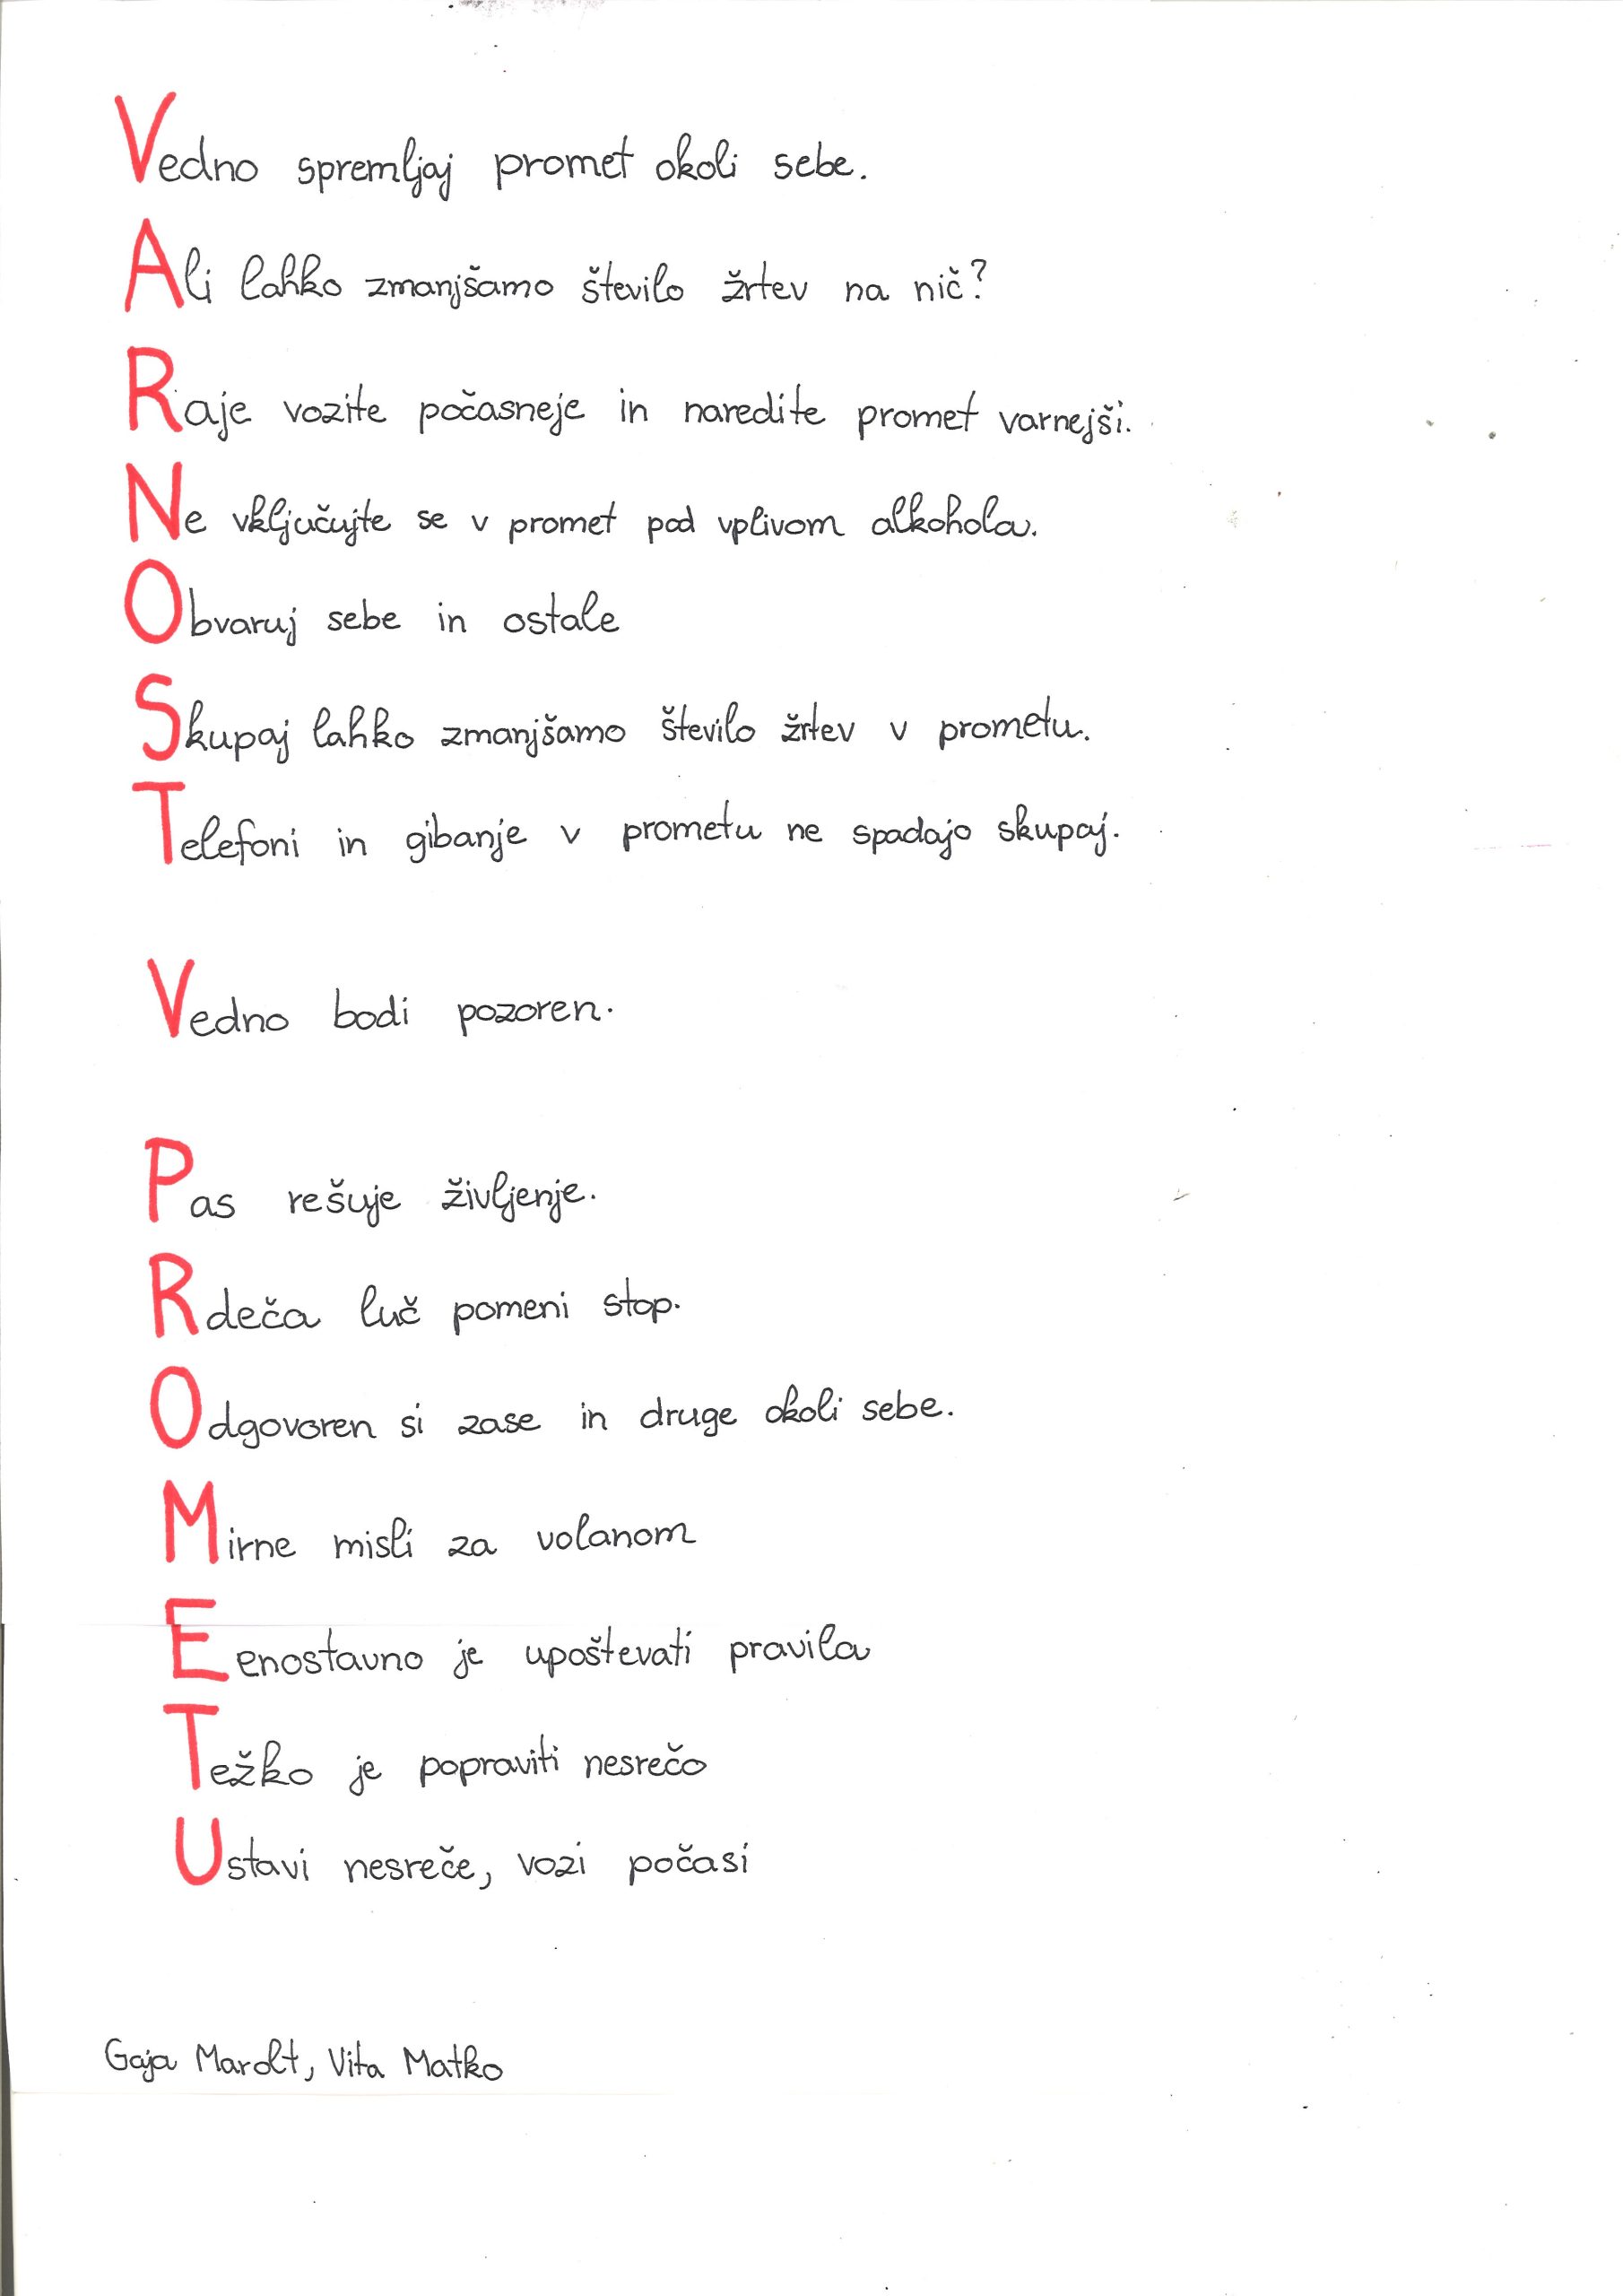 Vedno spremljaj promet okoli sebe.
Ali lahko zmanjšamo število žrtev na nič?
Raje vozite počasneje in naredite promet varnejši.
Ne vključujte se v promet pod vplivom alkohola.
Obvaruj sebe in ostale
Skupaj lahko zmanjšamo število žrtev v prometu.
Telefoni in gibanje v prometu ne spadajo skupaj.
Vedno bodi pozoren.
Pas rešuje življenje.
Rdeča luč pomeni stop.
Odgovoren si zase in druge okoli sebe.
Mirne misli za volanom
Eenostavno je upoštevati pravila
Težko je popraviti nesrečo
Ustavi nesreče, vozi počasi
Gaja Marolt, Vita Matko